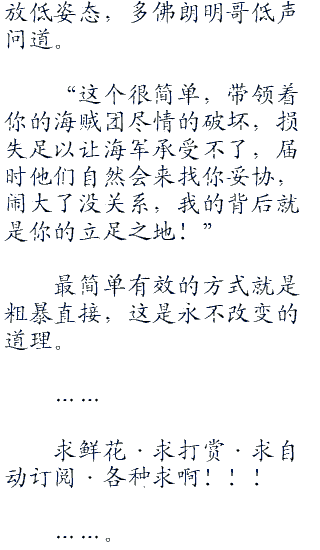 放低姿态，多佛朗明哥低声
问道。
“这个很简单，带领着
你的海贼团尽情的破坏，损
失足以让海军承受不了，届
时他们自然会来找你妥协，
闹大了没关系，我的背后就
是你的立足之地！”
最简单有效的方式就是
粗暴直接，这是永不改变的
道理。
……
求鲜花·求打赏·求自
动订阅·各种求啊！！！
……。